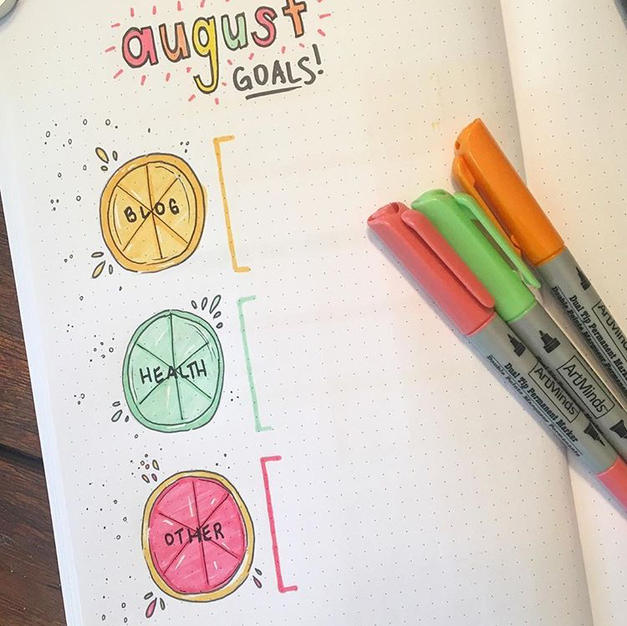 august
GOALS!
BLOG
HEALTH
OTHER
Dual Tip Permanent Marker
ArtMinds
Dual Tip Permanent Marker
ArtMinds